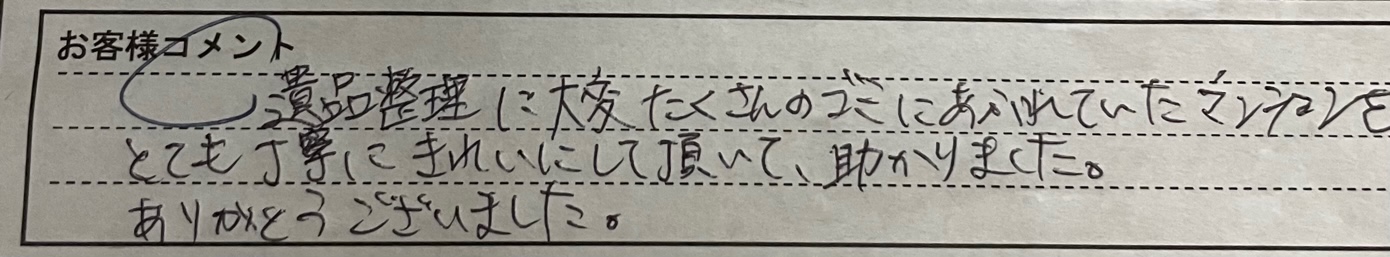 お客様コメント
遺品整理に大変たくさんのゴミにあふれていたマンションを
とても丁寧にきれいにして頂いて、助かりました。
ありがとうございました。